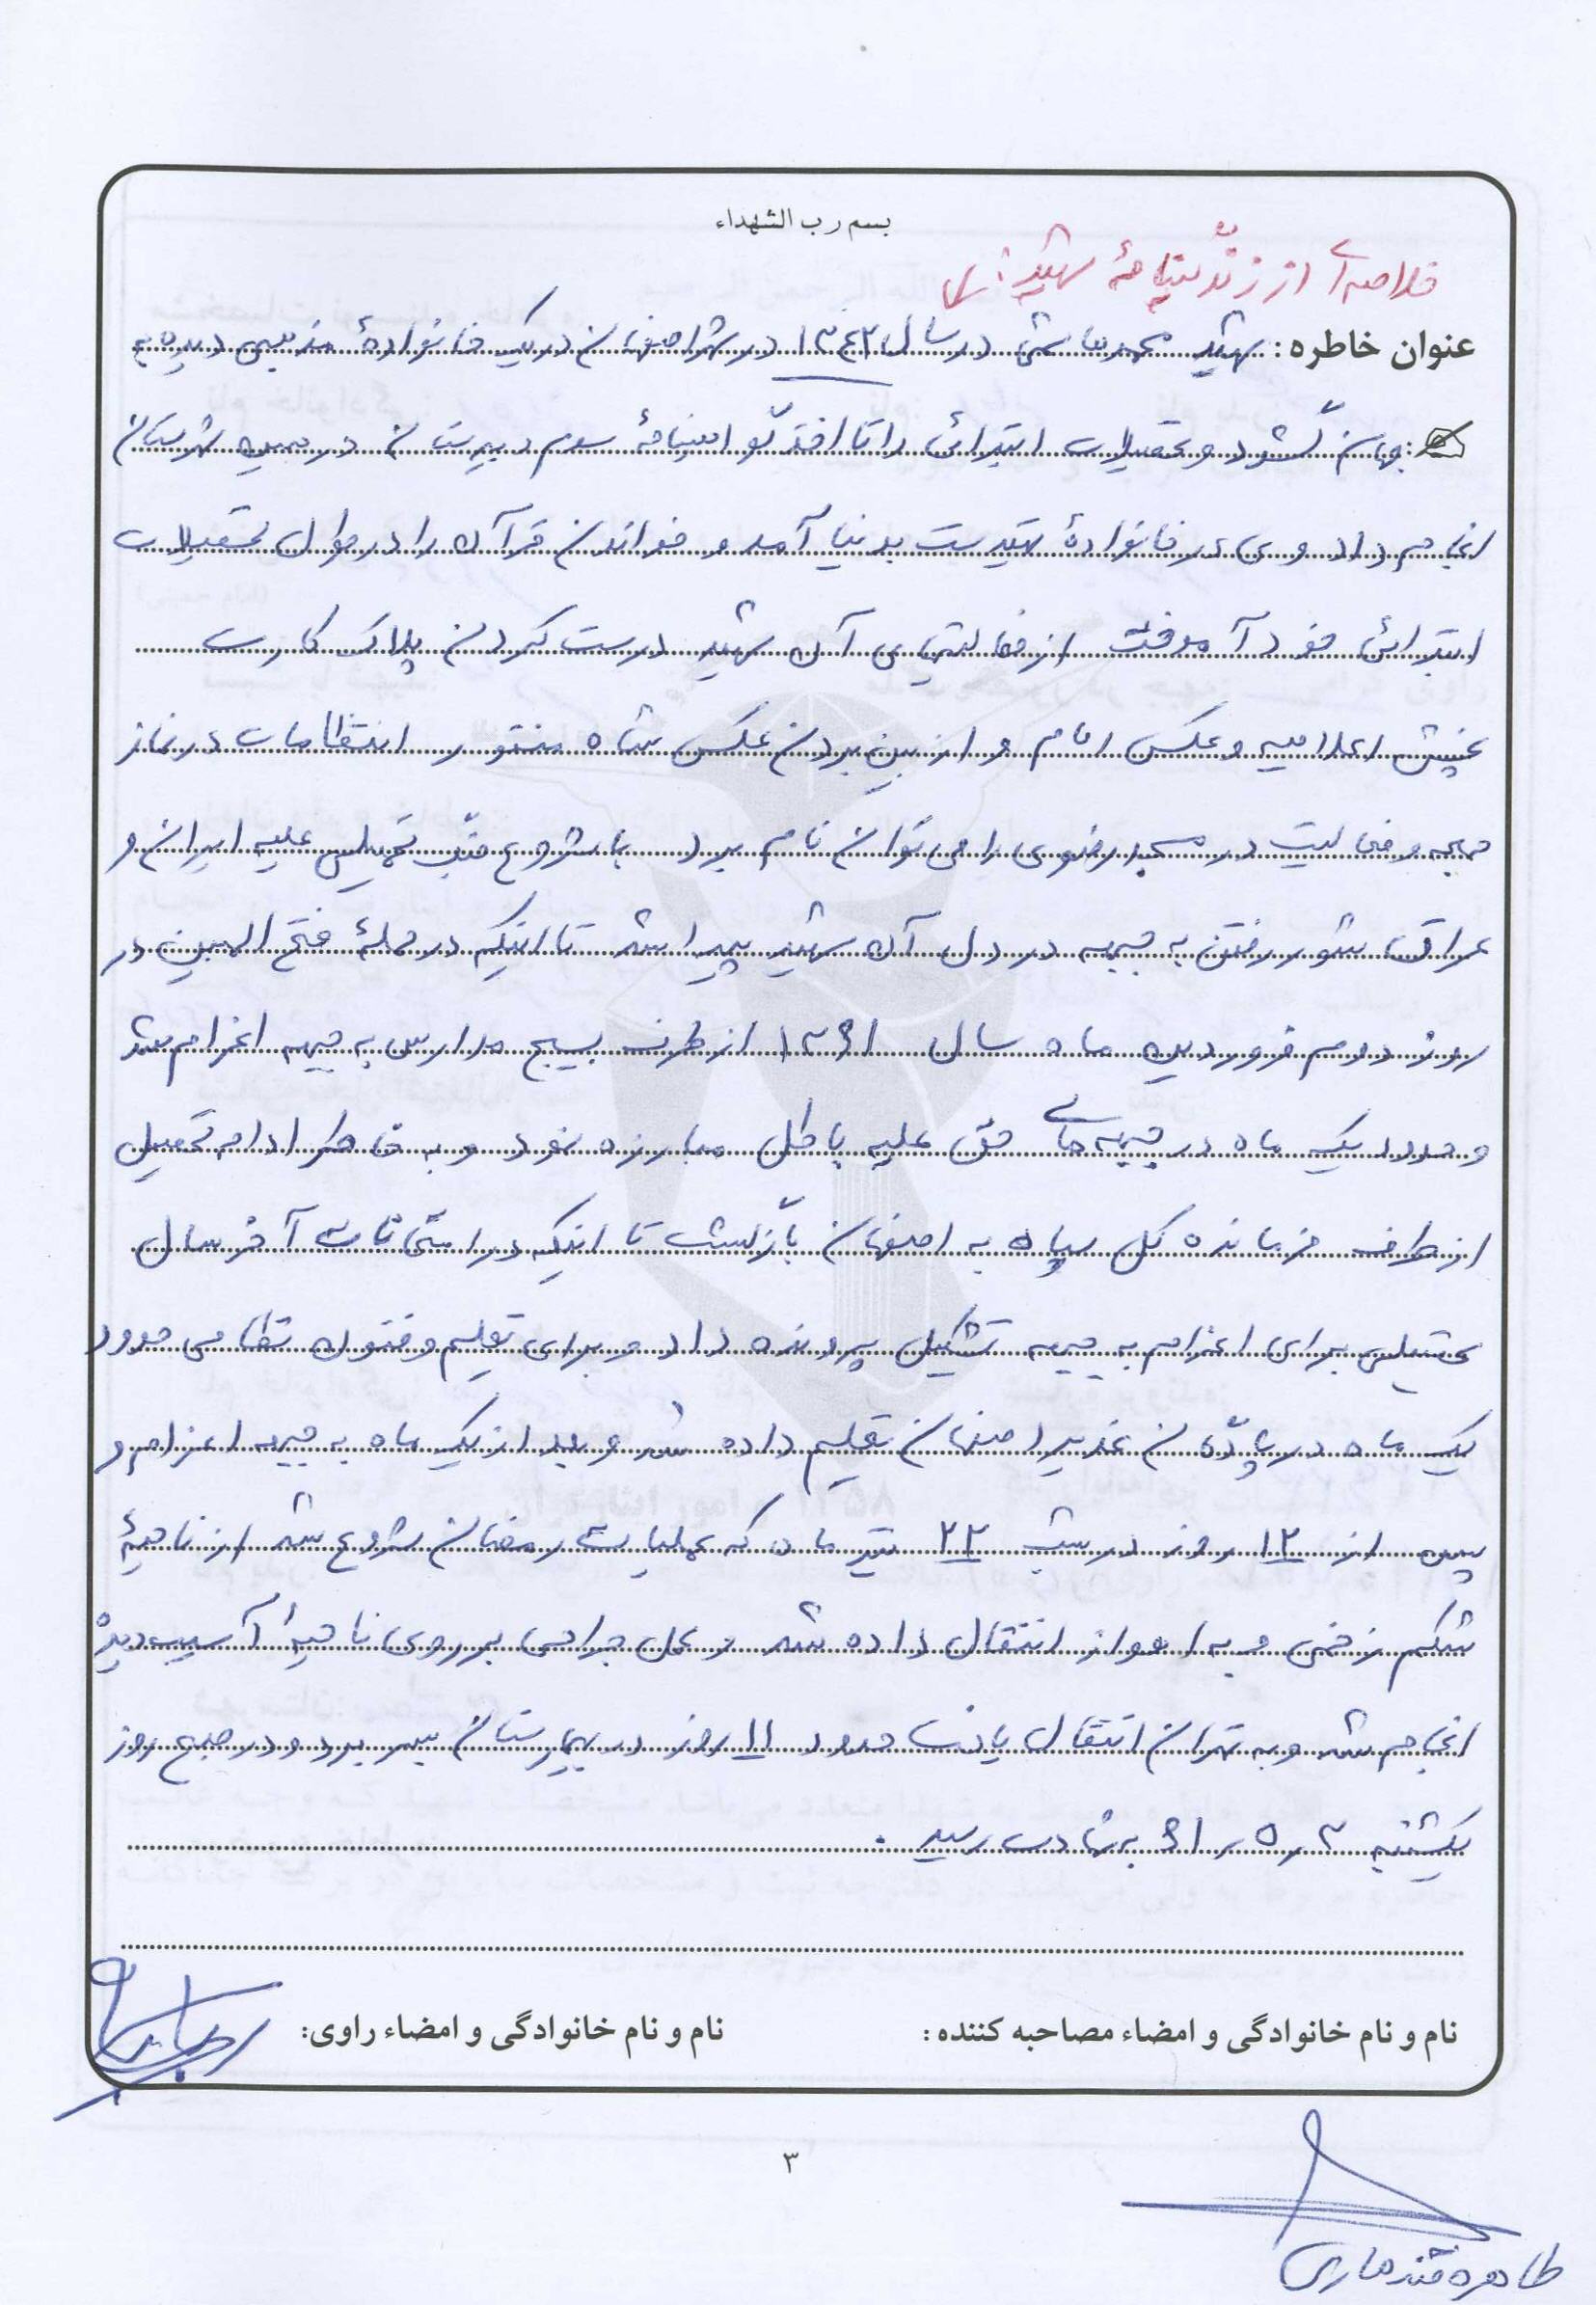 بسم رب الشهداء
خلاصه‌ای از زندگینامهٔ شهید:
عنوان خاطره: شهید محمد هاشمی در سال ۱۳۴۲ در شهر اصفهان در یک خانوادهٔ مذهبی دیده به
جهان گشود و تحصیلات ابتدائی را تا اخذ گواهینامهٔ سوم دبیرستان در همین شهرستان
انجام داد وی در خانوادهٔ تهیدست بدنیا آمد و خواندن قرآن را در طول تحصیلات
ابتدائی خود آموخت از فعالیتهای آن شهید درست کردن پلاک کارت
پخش اعلامیه و عکس امام و از بین بردن عکس شاه منفور انتظامات در نماز
جمعه و فعالیت در مسجد رضوی را می توان نام برد با شروع جنگ تحمیلی علیه ایران و
عراق شور رفتن به جبهه در دل آن شهید پیدا شد تا اینکه در حملهٔ فتح المبین در
روز دوم فروردین ماه سال ۱۳۶۱ از طرف بسیج مدارس به جبهه اعزام شد
و حدود یک ماه در جبهه های حق علیه باطل مبارزه نمود و به خاطر ادامه تحصیل
از طرف فرمانده کل سپاه به اصفهان بازگشت تا اینکه در امتحانات آخر سال
تحصیلی برای اعزام به جبهه تشکیل پرونده داد و برای تعلیم و فنون نظامی حدود
یک ماه در پادگان غدیر اصفهان تعلیم داده شد و بعد از یک ماه به جبهه اعزام و
پس از ۱۲ روز در شب ۲۲ تیر ماه که عملیات رمضان شروع شد از ناحیهٔ
شکم زخمی و به اهواز انتقال داده شد و عمل جراحی بر روی ناحیهٔ آسیب دیده
انجام شد و به تهران انتقال یافت حدود ۱۱ روز در بیمارستان بسر برد و در صبح روز
یکشنبه ۳ ر ۵ ر ۶۱ به شهادت رسید .
نام و نام خانوادگی و امضاء مصاحبه کننده :
نام و نام خانوادگی و امضاء راوی:
۳
طاهره قندهاری